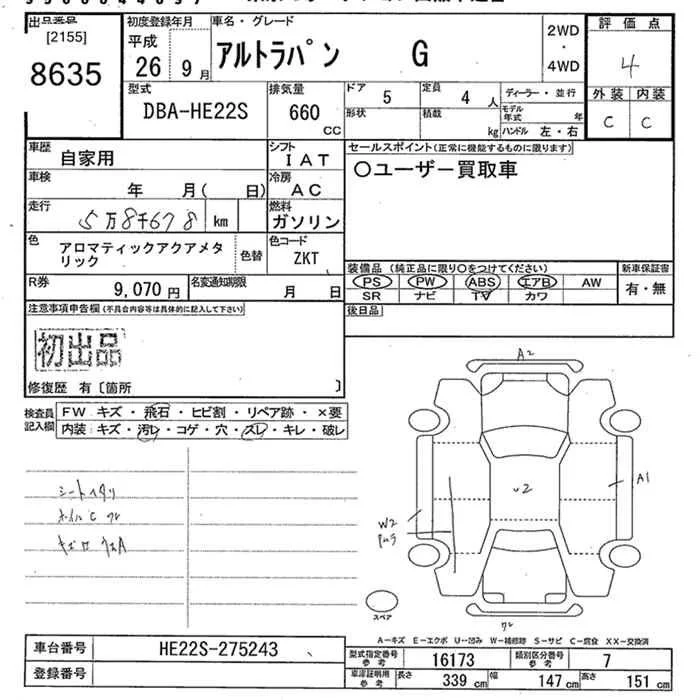 出品番号 初度登録年月 車名・グレード 2WD 評価点
[2155] 平成 アルトラパン G ・ 4
8635 26 9月 4WD 外装 内装
型式 排気量 ドア 5 定員 4人 ディーラー・並行 C C
DBA-HE22S 660 CC 形状 積載 kg モデル年式 年
ハンドル 左・右
車歴 自家用 シフト IAT セールスポイント(正常に機能するものに限ります)
車検 年 月( 日) 冷房 AC 〇ユーザー買取車
走行 5万8千678 km 燃料 ガソリン
色 アロマティックアクアメタリック 色替 色コード ZKT
装備品(純正品に限り〇をつけてください) 新車保証書
R券 9,070円 名変通知期限 月 日 PS PW ABS エアB AW 有・無
SR ナビ TV カワ
注意事項申告欄(不具合内容等は具体的に記入して下さい) 後日品
初出品
修復歴 有〔箇所 〕
検査員記入欄 FW キズ・飛石・ヒビ割・リペア跡・×要
内装 キズ・汚レ・コゲ・穴・スレ・キレ・破レ
A2
U2
A1
W2
シートヘタリ
スペア
A−キズ E−エクボ U−凹み W−補修跡 S−サビ C−腐食 XX−交換済
車台番号 HE22S-275243 型式指定番号 参考 16173 類別区分番号 参考 7
登録番号 車庫証明用 参考 長さ 339cm 幅 147cm 高さ 151cm